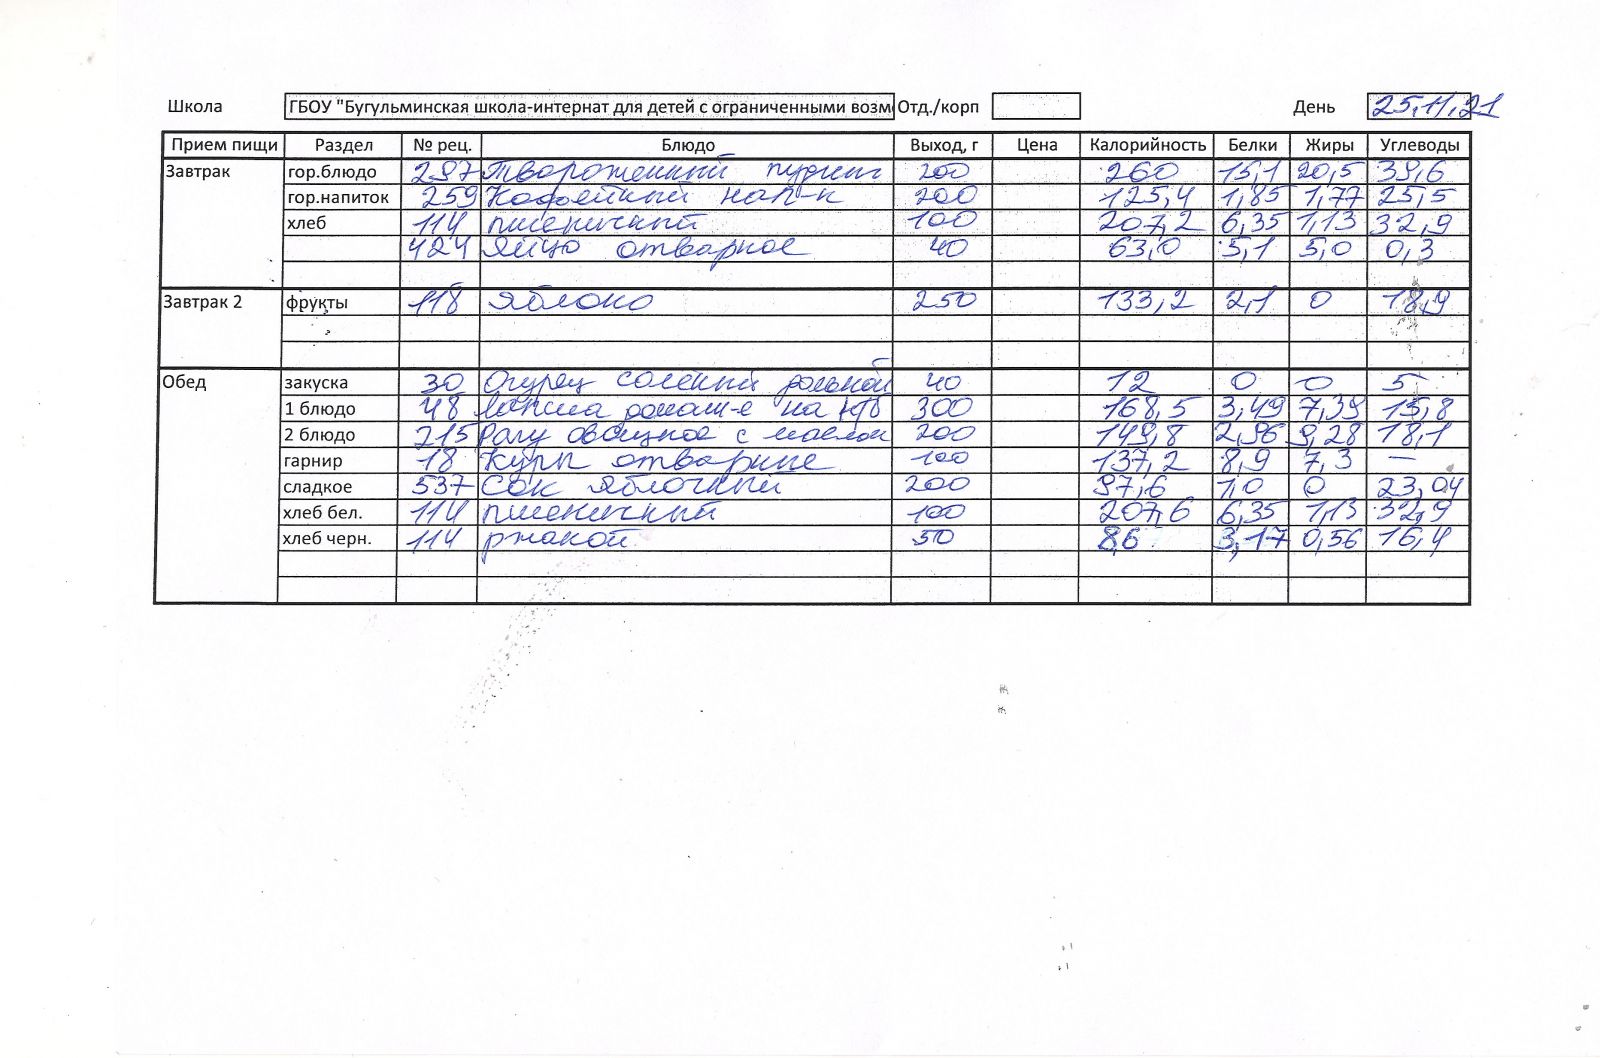 Школа ГБОУ "Бугульминская школа-интернат для детей с ограниченными возм Отд./корп День 25.11.21
Прием пищи Раздел № рец. Блюдо Выход, г Цена Калорийность Белки Жиры Углеводы
Завтрак гор.блюдо 297 Твороженный пудинг 200 260 15,1 20,5 39,6
гор.напиток 259 Кофейный нап-к 200 125,4 1,85 1,77 25,5
хлеб 114 пшеничный 100 207,2 6,35 1,13 32,9
424 Яйцо отварное 40 63,0 5,1 5,0 0,3
Завтрак 2 фрукты 118 Яблоко 250 133,2 2,1 0 18,9
Обед закуска 30 Огурец соленый 40 12 0 0 5
1 блюдо 48 Лапша домаш-я на 300 168,5 3,49 7,39 15,8
2 блюдо 215 Рагу овощное с маслом 200 149,8 2,96 9,28 18,1
гарнир 18 Куры отварные 100 137,2 8,9 7,3 —
сладкое 537 Сок Яблочный 200 97,6 1,0 0 23,04
хлеб бел. 114 пшеничный 100 207,6 6,35 1,13 32,9
хлеб черн. 114 ржаной 50 86 3,17 0,56 16,4